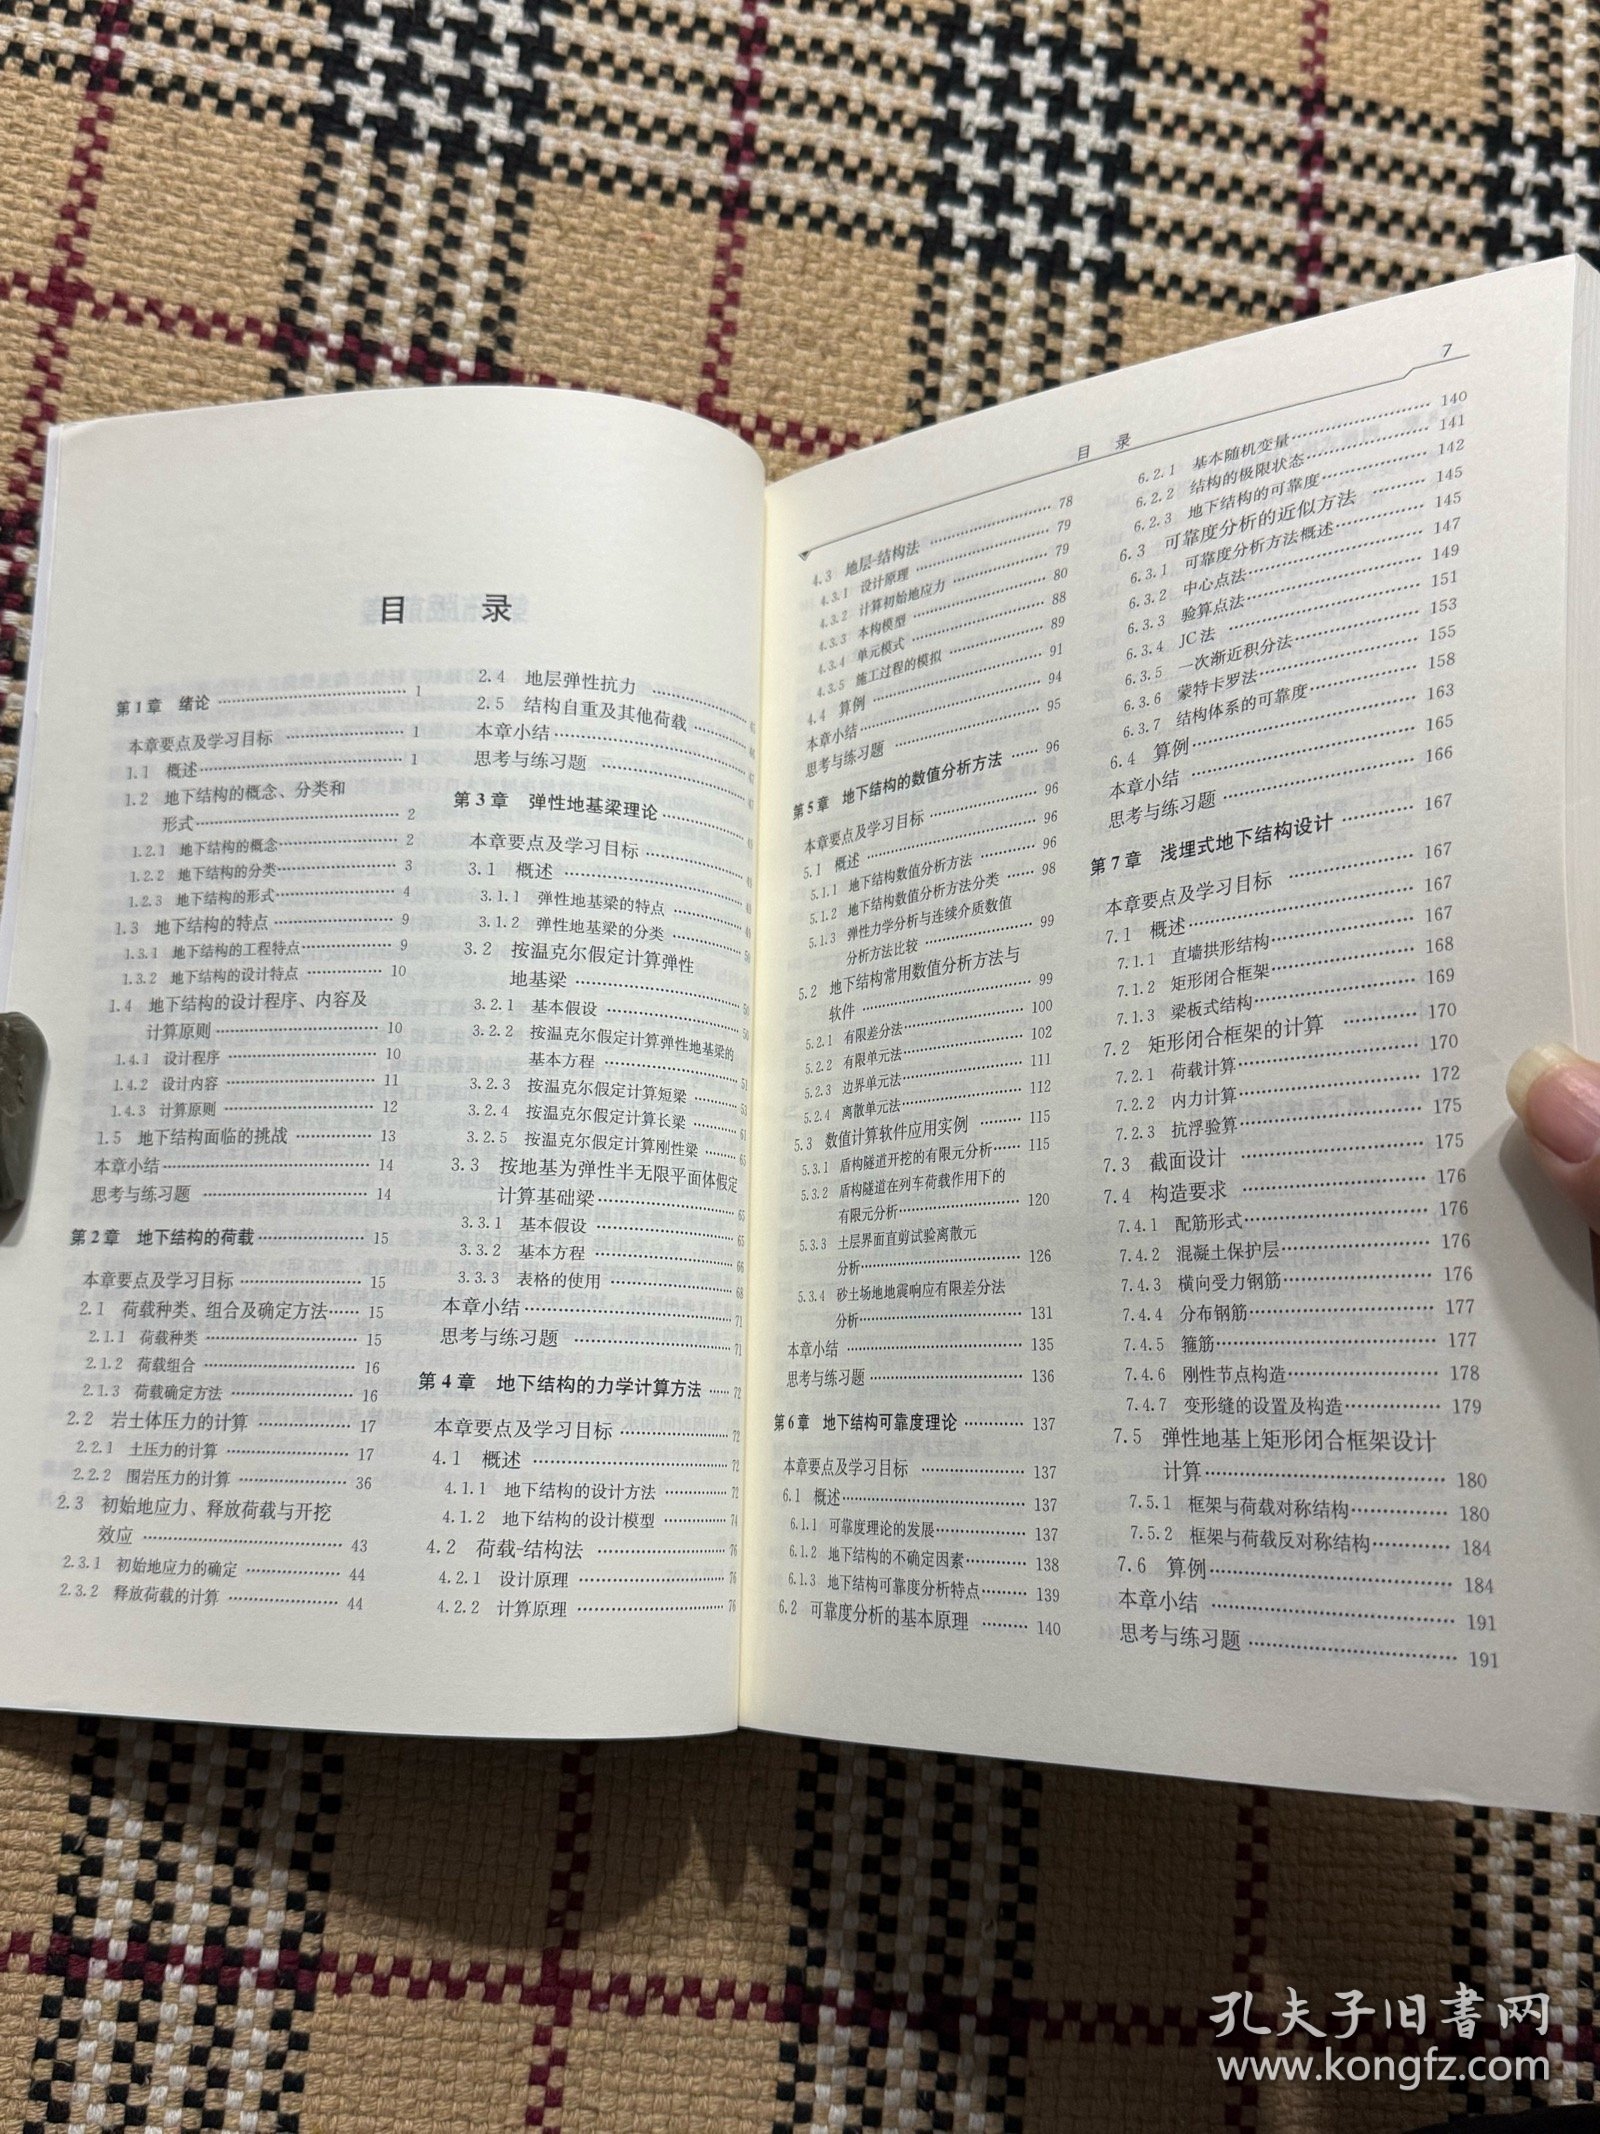 目 录
第1章 绪论 1
本章要点及学习目标 1
1.1 概述 1
1.2 地下结构的概念、分类和
形式 2
1.2.1 地下结构的概念 2
1.2.2 地下结构的分类 3
1.2.3 地下结构的形式 4
1.3 地下结构的特点 9
1.3.1 地下结构的工程特点 9
1.3.2 地下结构的设计特点 10
1.4 地下结构的设计程序、内容及
计算原则 10
1.4.1 设计程序 10
1.4.2 设计内容 11
1.4.3 计算原则 12
1.5 地下结构面临的挑战 13
本章小结 14
思考与练习题 14
第2章 地下结构的荷载 15
本章要点及学习目标 15
2.1 荷载种类、组合及确定方法 15
2.1.1 荷载种类 15
2.1.2 荷载组合 16
2.1.3 荷载确定方法 16
2.2 岩土体压力的计算 17
2.2.1 土压力的计算 17
2.2.2 围岩压力的计算 36
2.3 初始地应力、释放荷载与开挖
效应 43
2.3.1 初始地应力的确定 44
2.3.2 释放荷载的计算 44
2.4 地层弹性抗力
2.5 结构自重及其他荷载
本章小结
思考与练习题
第3章 弹性地基梁理论
本章要点及学习目标
3.1 概述
3.1.1 弹性地基梁的特点
3.1.2 弹性地基梁的分类
3.2 按温克尔假定计算弹性
地基梁 50
3.2.1 基本假设 50
3.2.2 按温克尔假定计算弹性地基梁的
基本方程 51
3.2.3 按温克尔假定计算短梁 53
3.2.4 按温克尔假定计算长梁 61
3.2.5 按温克尔假定计算刚性梁 65
3.3 按地基为弹性半无限平面体假定
计算基础梁 65
3.3.1 基本假设 65
3.3.2 基本方程 66
3.3.3 表格的使用 68
本章小结 71
思考与练习题 71
第4章 地下结构的力学计算方法 72
本章要点及学习目标 72
4.1 概述 72
4.1.1 地下结构的设计方法 72
4.1.2 地下结构的设计模型 74
4.2 荷载-结构法 76
4.2.1 设计原理 76
4.2.2 计算原理 76
目 录 7
4.3 地层-结构法 78
4.3.1 设计原理 79
4.3.2 计算初始地应力 79
4.3.3 本构模型 80
4.3.4 单元模式 88
4.3.5 施工过程的模拟 89
4.4 算例 91
本章小结 94
思考与练习题 95
第5章 地下结构的数值分析方法 96
本章要点及学习目标 96
5.1 概述 96
5.1.1 地下结构数值分析方法 96
5.1.2 地下结构数值分析方法分类 98
5.1.3 弹性力学分析与连续介质数值
分析方法比较 99
5.2 地下结构常用数值分析方法与
软件 99
5.2.1 有限差分法 100
5.2.2 有限单元法 102
5.2.3 边界单元法 111
5.2.4 离散单元法 112
5.3 数值计算软件应用实例 115
5.3.1 盾构隧道开挖的有限元分析 115
5.3.2 盾构隧道在列车荷载作用下的
有限元分析 120
5.3.3 土层界面直剪试验离散元
分析 126
5.3.4 砂土场地地震响应有限差分法
分析 131
本章小结 135
思考与练习题 136
第6章 地下结构可靠度理论 137
本章要点及学习目标 137
6.1 概述 137
6.1.1 可靠度理论的发展 137
6.1.2 地下结构的不确定因素 138
6.1.3 地下结构可靠度分析特点 139
6.2 可靠度分析的基本原理 140
6.2.1 基本随机变量 140
6.2.2 结构的极限状态 141
6.2.3 地下结构的可靠度 142
6.3 可靠度分析的近似方法 145
6.3.1 可靠度分析方法概述 145
6.3.2 中心点法 147
6.3.3 验算点法 149
6.3.4 JC法 151
6.3.5 一次渐近积分法 153
6.3.6 蒙特卡罗法 155
6.3.7 结构体系的可靠度 158
6.4 算例 163
本章小结 165
思考与练习题 166
第7章 浅埋式地下结构设计 167
本章要点及学习目标 167
7.1 概述 167
7.1.1 直墙拱形结构 167
7.1.2 矩形闭合框架 168
7.1.3 梁板式结构 169
7.2 矩形闭合框架的计算 170
7.2.1 荷载计算 170
7.2.2 内力计算 172
7.2.3 抗浮验算 175
7.3 截面设计 175
7.4 构造要求 176
7.4.1 配筋形式 176
7.4.2 混凝土保护层 176
7.4.3 横向受力钢筋 176
7.4.4 分布钢筋 177
7.4.5 箍筋 177
7.4.6 刚性节点构造 178
7.4.7 变形缝的设置及构造 179
7.5 弹性地基上矩形闭合框架设计
计算 180
7.5.1 框架与荷载对称结构 180
7.5.2 框架与荷载反对称结构 184
7.6 算例 184
本章小结 191
思考与练习题 191
孔夫子旧書网
www.kongfz.com